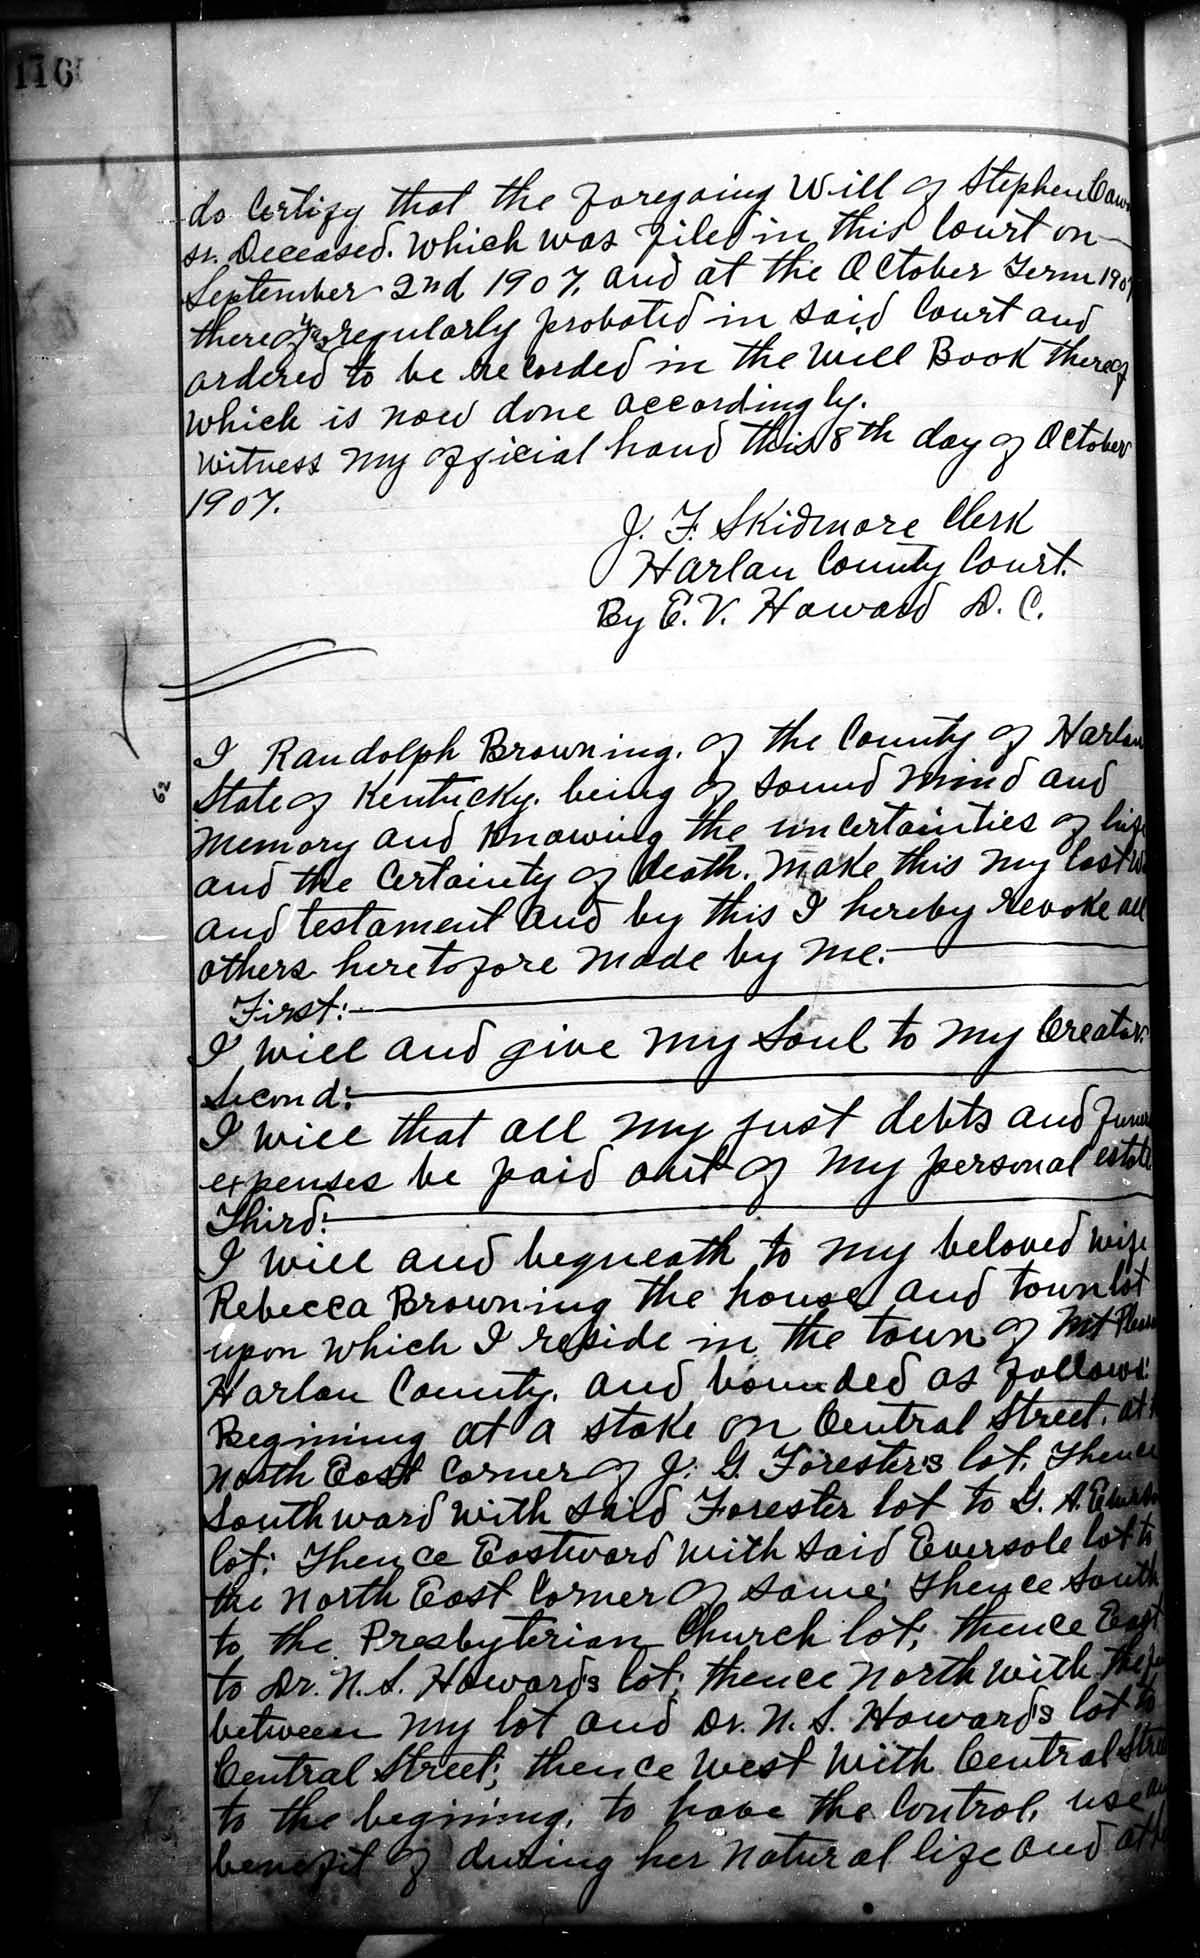 116
do Certify that the foregoing Will of Stephen Caw
sr. Deceased. Which was filed in this Court on
September 2nd 1907, and at the October Term 190
thereof was regularly probated in said Court and
ordered to be recorded in the Will Book thereof
which is now done accordingly.
Witness my official hand this 8th day of October
1907.
J. F. Skidmore Clerk
Harlan County Court.
By E. V. Howard D. C.
I Randolph Browning, of the County of Harlan
62
State of Kentucky, being of sound mind and
memory and knowing the uncertainties of life
and the Certainty of death, make this my last
and testament and by this I hereby revoke all
others heretofore made by me.
First:
I will and give my soul to my Creator.
Second:
I will that all my just debts and
expenses be paid out of my personal estate
Third:
I will and bequeath to my beloved wife
Rebecca Browning the house and town lot
upon which I reside in the town of Mt
Harlan County, and bounded as follows:
Begining at a stake on Central Street, at
North East Corner of J. G. Forester's lot, Thence
Southward with said Forester lot to G. A.
lot; Thence Eastward with said Eversole lot to
the North East Corner of same; Thence South
to the Presbyterian Church lot; thence East
to Dr. N. S. Howard's lot; thence North with the
between my lot and Dr. N. S. Howard's lot to
Central Street; thence West with Central
to the begining, to have the Control, use
benefit of during her natural life and at